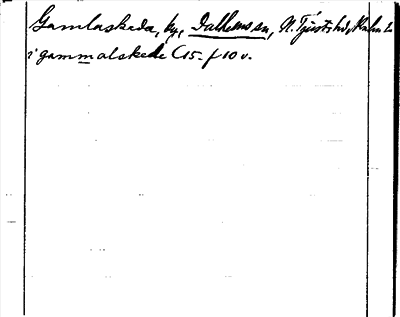 Gamlaskeda, by, Dalhems sn, N. Tjusts hd, Kalm. L.
i gammalskede C 15 - f 10 v.